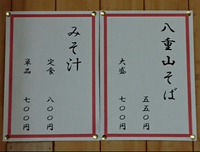 八重山そば
五五〇円
大盛 七〇〇円
みそ汁
定食 八〇〇円
単品 七〇〇円